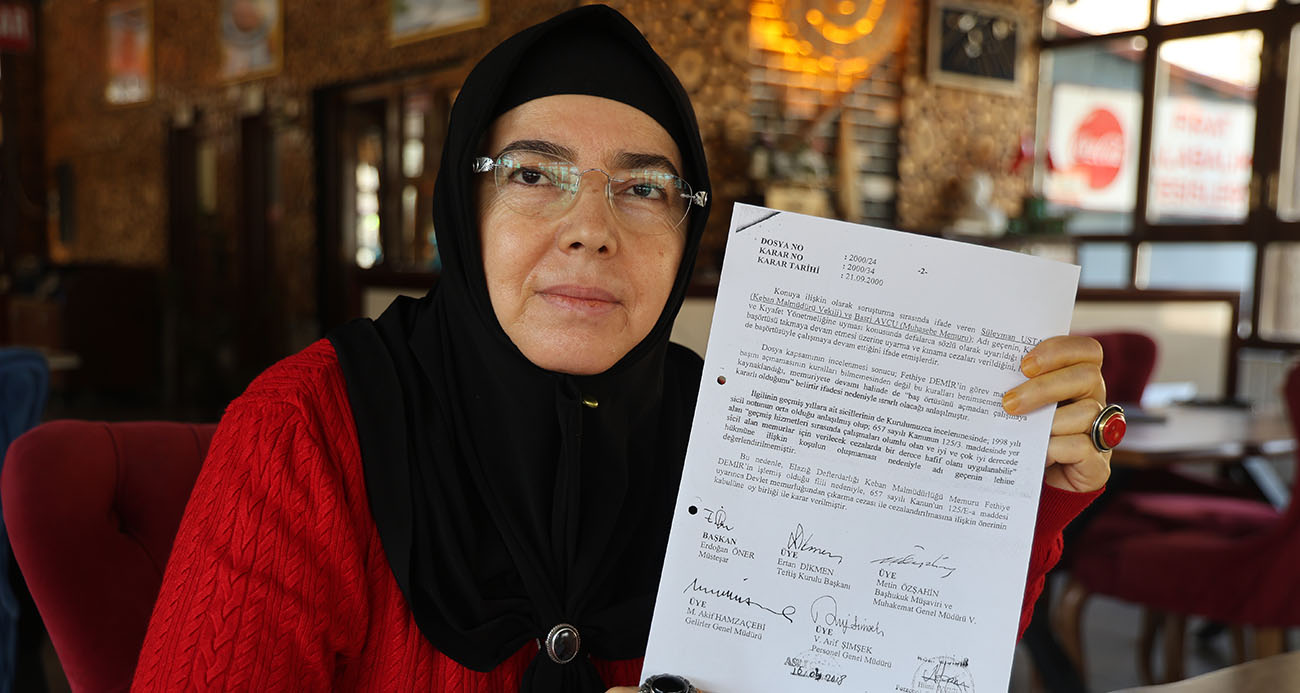 DOSYA NO : 2000/24 -2-
KARAR NO : 2000/34
KARAR TARİHİ : 21.09.2000
Konuya ilişkin olarak soruşturma sırasında ifade veren Süleyman
(Keban Malmüdürü Vekili) ve Basri AVCU (Muhasebe Memuru); Adı geçenin,
ve Kıyafet Yönetmeliğine uyması konusunda defalarca sözlü olarak uyarıldığı
başörtüsü takmaya devam etmesi üzerine uyarma ve kınama cezaları verildiğini,
de başörtüsüyle çalışmaya devam ettiğini ifade etmişlerdir.
Dosya kapsamının incelenmesi sonucu; Fethiye DEMİR'in görev
başını açmamasının kuralları bilmemesinden değil bu kuralları benimsememe
kaynaklandığı, memuriyete devamı halinde de "baş örtüsünü açmadan çalışmaya
kararlı olduğunu" belirtir ifadesi nedeniyle ısrarlı olacağı anlaşılmıştır.
İlgilinin geçmiş yıllara ait sicillerinin de Kurulumuzca incelenmesinde; 1998 yılı
sicil notunun orta olduğu anlaşılmış olup; 657 sayılı Kanunun 125/3. maddesinde yer
alan "geçmiş hizmetleri sırasında çalışmaları olumlu olan ve iyi ve çok iyi derecede
sicil alan memurlar için verilecek cezalarda bir derece hafif olanı uygulanabilir"
hükmüne ilişkin koşulun oluşmaması nedeniyle adı geçenin lehine
değerlendirilmemiştir.
Bu nedenle, Elazığ Defterdarlığı Keban Malmüdürlüğü Memuru Fethiye
DEMİR'in işlemiş olduğu fiili nedeniyle, 657 sayılı Kanun'un 125/E-a maddesi
uyarınca Devlet memurluğundan çıkarma cezası ile cezalandırılmasına ilişkin önerinin
kabulüne oy birliği ile karar verilmiştir.
BAŞKAN
Erdoğan ÖNER
Müsteşar
ÜYE
Ertan DİKMEN
Teftiş Kurulu Başkanı
ÜYE
Metin ÖZŞAHİN
Başhukuk Müşaviri ve
Muhakemat Genel Müdürü V.
ÜYE
M. Akif HAMZAÇEBİ
Gelirler Genel Müdürü
ÜYE
V. Arif ŞİMŞEK
Personel Genel Müdürü
Coca-Cola